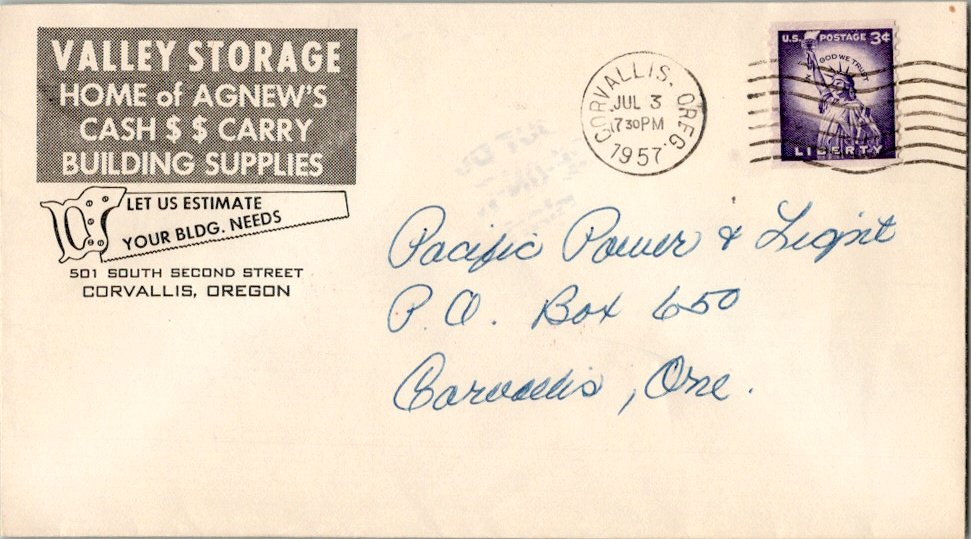 VALLEY STORAGE
HOME of AGNEW'S
CASH $ $ CARRY
BUILDING SUPPLIES
LET US ESTIMATE
YOUR BLDG. NEEDS
501 SOUTH SECOND STREET
CORVALLIS, OREGON
CORVALLIS, OREG.
JUL 3
7 30 PM
1957
U.S. POSTAGE 3¢
IN GOD WE TRUST
LIBERTY
Pacific Power & Light
P.O. Box 650
Corvallis, Ore.